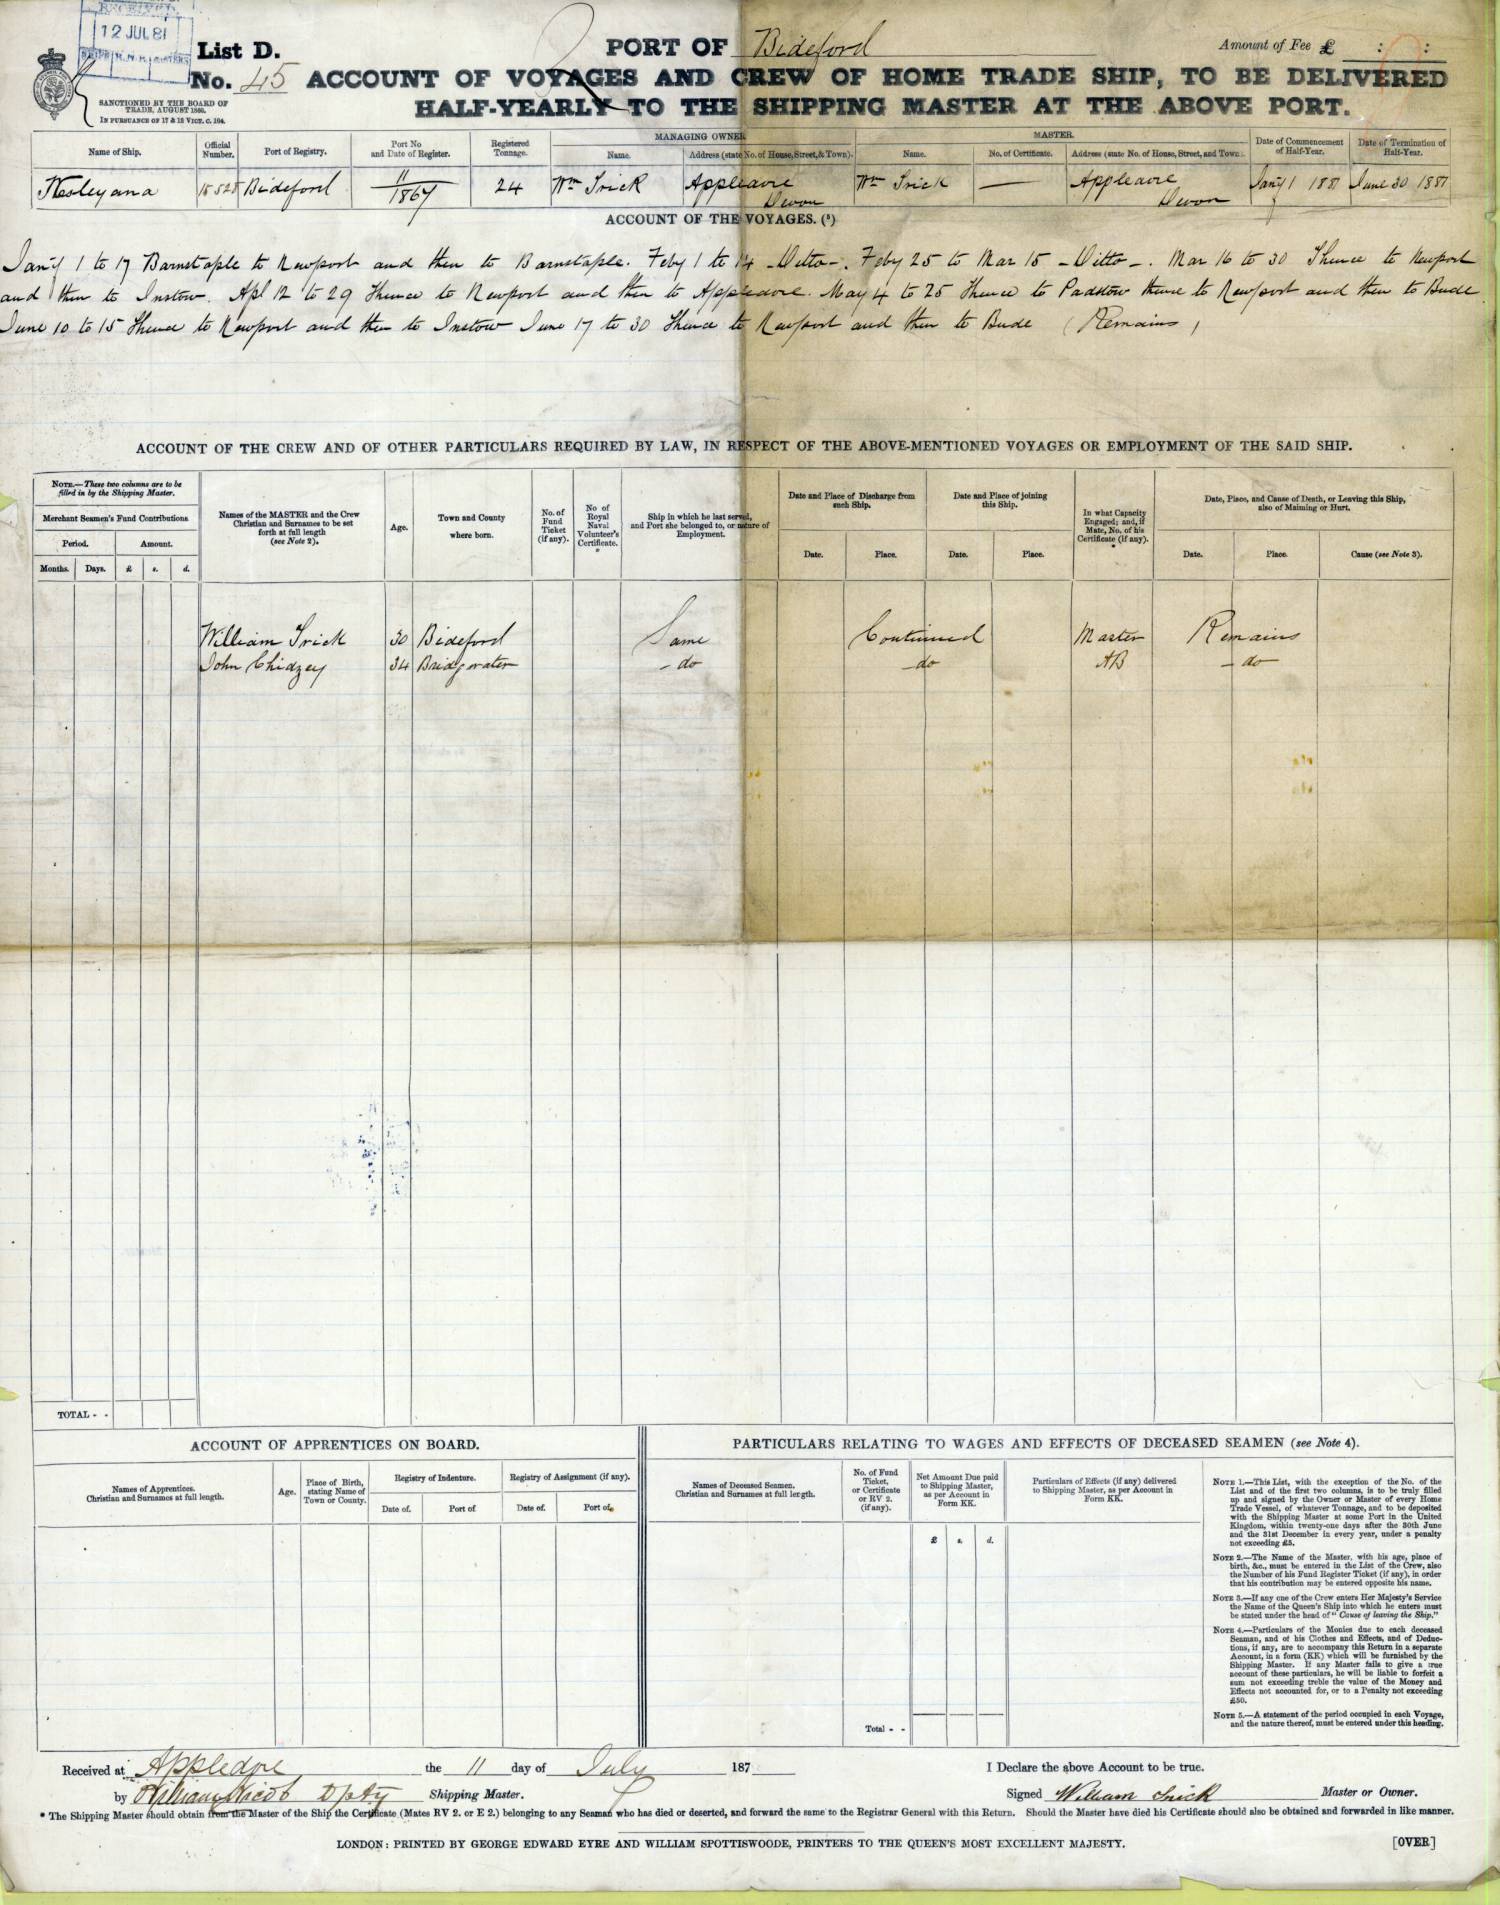 RECEIVED
12 JUL 81
List D.
PORT OF Bideford
Amount of Fee £ : :
No. 45 ACCOUNT OF VOYAGES AND CREW OF HOME TRADE SHIP, TO BE DELIVERED
HALF-YEARLY TO THE SHIPPING MASTER AT THE ABOVE PORT.
SANCTIONED BY THE BOARD OF
TRADE, AUGUST 1860.
IN PURSUANCE OF 17 & 18 VICT. C. 104.
Name of Ship. Official Number. Port of Registry. Port No and Date of Register. Registered Tonnage. MANAGING OWNER Name. Address (state No. of House, Street, & Town). MASTER. Name. No. of Certificate. Address (state No. of House, Street, and Town). Date of Commencement of Half-Year. Date of Termination of Half-Year.
Wesleyana 15528 Bideford 11/1867 24 Wm Trick Appledore Devon Wm Trick — Appledore Devon Jany 1 1881 June 30 1881
ACCOUNT OF THE VOYAGES. (5)
Jany 1 to 17 Barnstaple to Newport and then to Barnstaple. Feby 1 to 14 - Ditto -. Feby 25 to Mar 15 - Ditto -. Mar 16 to 30 Thence to Newport
and then to Instow. Apl 12 to 29 Thence to Newport and then to Appledore. May 4 to 25 Thence to Padstow thence to Newport and then to Bude
June 10 to 15 Thence to Newport and then to Instow June 17 to 30 Thence to Newport and then to Bude (Remains)
ACCOUNT OF THE CREW AND OF OTHER PARTICULARS REQUIRED BY LAW, IN RESPECT OF THE ABOVE-MENTIONED VOYAGES OR EMPLOYMENT OF THE SAID SHIP.
NOTE.—These two columns are to be
filled in by the Shipping Master.
Merchant Seamen's Fund Contributions
Period. Amount.
Months. Days. £ s. d.
Names of the MASTER and the Crew
Christian and Surnames to be set
forth at full length
(see Note 2).
Age.
Town and County
where born.
No. of
Fund
Ticket
(if any).
No of
Royal
Naval
Volunteer's
Certificate.
*
Ship in which he last served,
and Port she belonged to, or nature of
Employment.
Date and Place of Discharge from
such Ship.
Date. Place.
Date and Place of joining
this Ship.
Date. Place.
In what Capacity
Engaged; and, if
Mate, No. of his
Certificate (if any).
*
Date, Place, and Cause of Death, or Leaving this Ship,
also of Maiming or Hurt.
Date. Place. Cause (see Note 3).
William Trick 30 Bideford Same Continued Master Remains
John Chidzey 34 Bridgwater - do - do AB - do -
TOTAL - -
ACCOUNT OF APPRENTICES ON BOARD.
Names of Apprentices.
Christian and Surnames at full length.
Age.
Place of Birth,
stating Name of
Town or County.
Registry of Indenture.
Date of. Port of
Registry of Assignment (if any).
Date of. Port of.
PARTICULARS RELATING TO WAGES AND EFFECTS OF DECEASED SEAMEN (see Note 4).
Names of Deceased Seamen.
Christian and Surnames at full length.
No. of Fund
Ticket,
or Certificate
or RV 2.
(if any).
Net Amount Due paid
to Shipping Master,
as per Account in
Form KK.
£ s. d.
Particulars of Effects (if any) delivered
to Shipping Master, as per Account in
Form KK.
Total - -
NOTE 1.—This List, with the exception of the No. of the
List and of the first two columns, is to be truly filled
up and signed by the Owner or Master of every Home
Trade Vessel, of whatever Tonnage, and to be deposited
with the Shipping Master at some Port in the United
Kingdom, within twenty-one days after the 30th June
and the 31st December in every year, under a penalty
not exceeding £5.
NOTE 2.—The Name of the Master, with his age, place of
birth, &c., must be entered in the List of the Crew, also
the Number of his Fund Register Ticket (if any), in order
that his contribution may be entered opposite his name.
NOTE 3.—If any one of the Crew enters Her Majesty's Service
the Name of the Queen's Ship into which he enters must
be stated under the head of "Cause of leaving the Ship."
NOTE 4.—Particulars of the Monies due to each deceased
Seaman, and of his Clothes and Effects, and of Deduc-
tions, if any, are to accompany this Return in a separate
Account, in a form (KK) which will be furnished by the
Shipping Master. If any Master fails to give a true
account of these particulars, he will be liable to forfeit a
sum not exceeding treble the value of the Money and
Effects not accounted for, or to a Penalty not exceeding
£50.
NOTE 5.—A statement of the period occupied in each Voyage,
and the nature thereof, must be entered under this heading.
Received at Appledore the 11 day of July 187
I Declare the above Account to be true.
by William Jacob Dpty Shipping Master.
Signed William Trick Master or Owner.
* The Shipping Master should obtain from the Master of the Ship the Certificate (Mates RV 2. or E 2.) belonging to any Seaman who has died or deserted, and forward the same to the Registrar General with this Return. Should the Master have died his Certificate should also be obtained and forwarded in like manner.
LONDON: PRINTED BY GEORGE EDWARD EYRE AND WILLIAM SPOTTISWOODE, PRINTERS TO THE QUEEN'S MOST EXCELLENT MAJESTY.
[OVER]